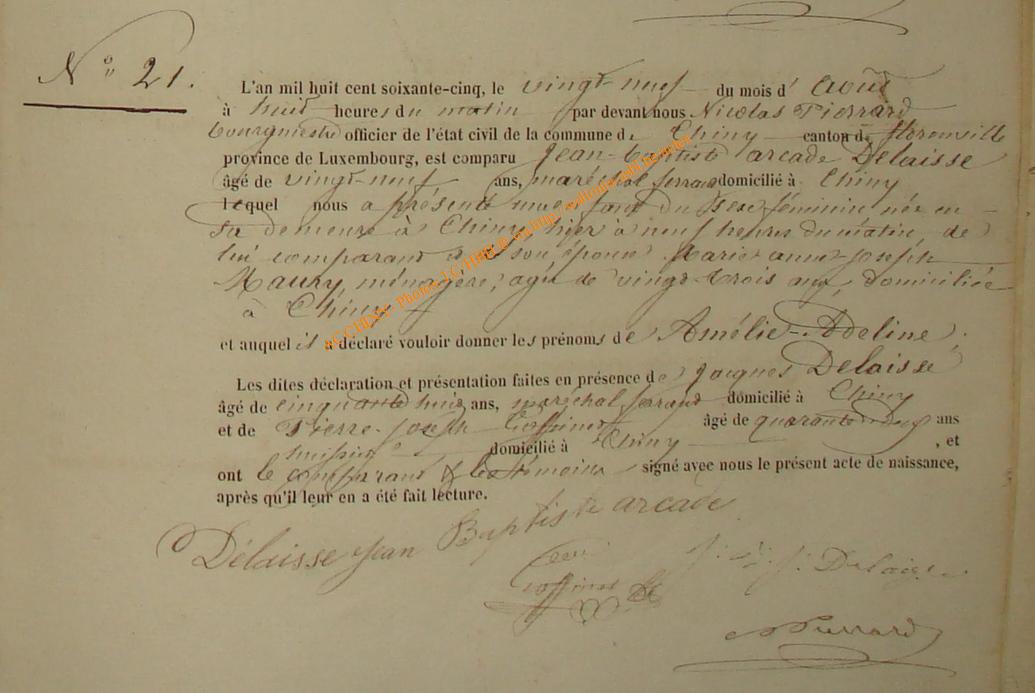 N° 21.
L'an mil huit cent soixante-cinq, le vingt-neuf du mois d'août
à huit heures du matin par devant nous Nicolas Pierrard
bourgmestre officier de l'état civil de la commune de Chiny canton de Florenville
province de Luxembourg, est comparu Jean-Baptiste arcade Delaisse
âgé de vingt-neuf ans, maréchal ferrant domicilié à Chiny
lequel nous a présenté un enfant du sexe féminin née en
sa demeure à Chiny hier à neuf heures du matin, de
lui comparant & de son épouse Marie anne-joseph
Maury, ménagère, agée de vingt-trois ans, domiciliée
à Chiny
et auquel il a déclaré vouloir donner les prénoms de Amélie-Adeline,
Les dites déclaration et présentation faites en présence de Jacques Delaisse
âgé de cinquante huit ans, maréchal ferrant domicilié à Chiny
et de Pierre-Joseph Goffinet âgé de quarante deux ans
domicilié à Chiny , et
ont le comparant & les témoins signé avec nous le présent acte de naissance,
après qu'il leur en a été fait lecture.
Délaisse Jean Baptiste arcade
Goffinet
J. Delaisse
NPierrard